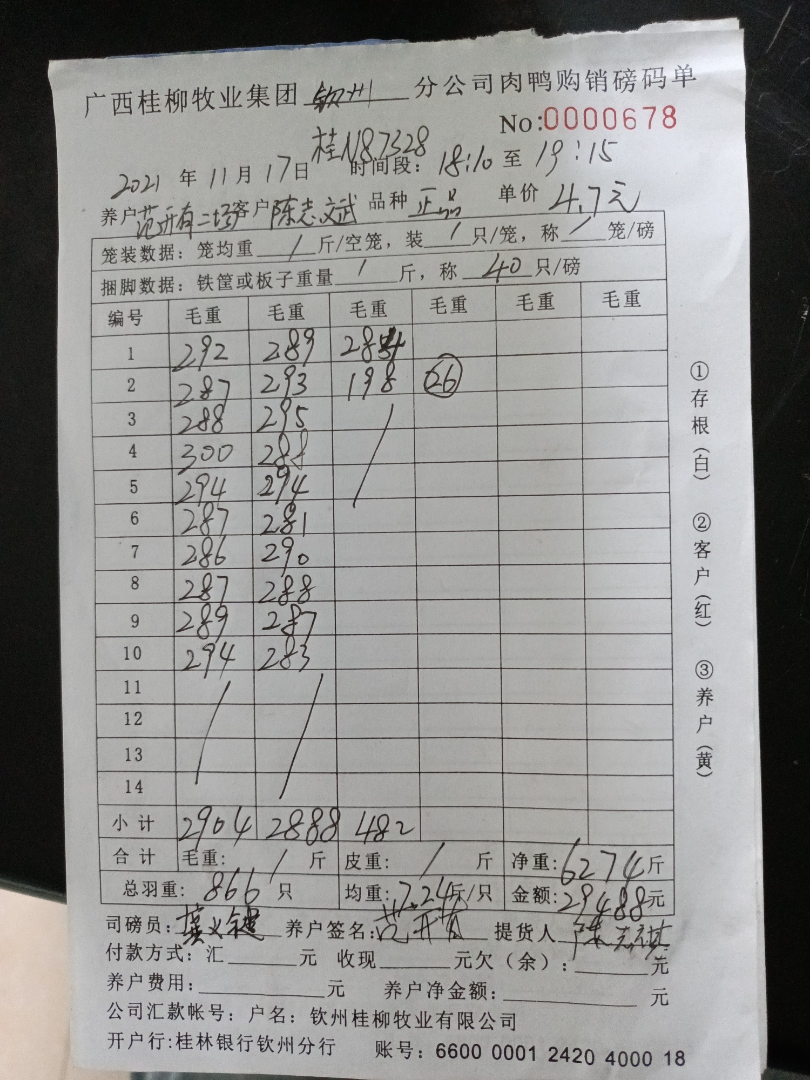 广西桂柳牧业集团 钦州 分公司肉鸭购销磅码单
No:0000678
桂N87328
2021 年 11 月 17 日 时间段: 18:10 至 19:15
养户 范开有二场 客户 陈志斌 品种 正品 单价 4.7元
笼装数据: 笼均重 / 斤/空笼, 装 / 只/笼, 称 / 笼/磅
捆脚数据: 铁筐或板子重量 / 斤, 称 40 只/磅
编号 毛重 毛重 毛重 毛重 毛重 毛重
1 292 289 284
2 287 293 198 26
3 288 295 /
4 300 288
5 294 294
6 287 281
7 286 290
8 287 288
9 289 287
10 294 283
11 / /
12
13
14
小计 2904 2888 482
合计 毛重: / 斤 皮重: / 斤 净重: 6274 斤
总羽重: 866 只 均重: 7.24 斤/只 金额: 29488 元
司磅员: 养户签名: 范开有 提货人 陈志
付款方式: 汇 元 收现 元欠(余): 元
养户费用: 元 养户净金额: 元
公司汇款帐号: 户名: 钦州桂柳牧业有限公司
开户行:桂林银行钦州分行 账号: 6600 0001 2420 4000 18
①存根(白) ②客户(红) ③养户(黄)